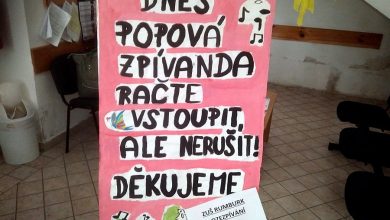 DNES
POPOVÁ
ZPÍVANDA
RAČTE
VSTOUPIT,
ALE NERUŠIT!
DĚKUJEME
ZUŠ RUMBURK
ROZEZPÍVÁNÍ